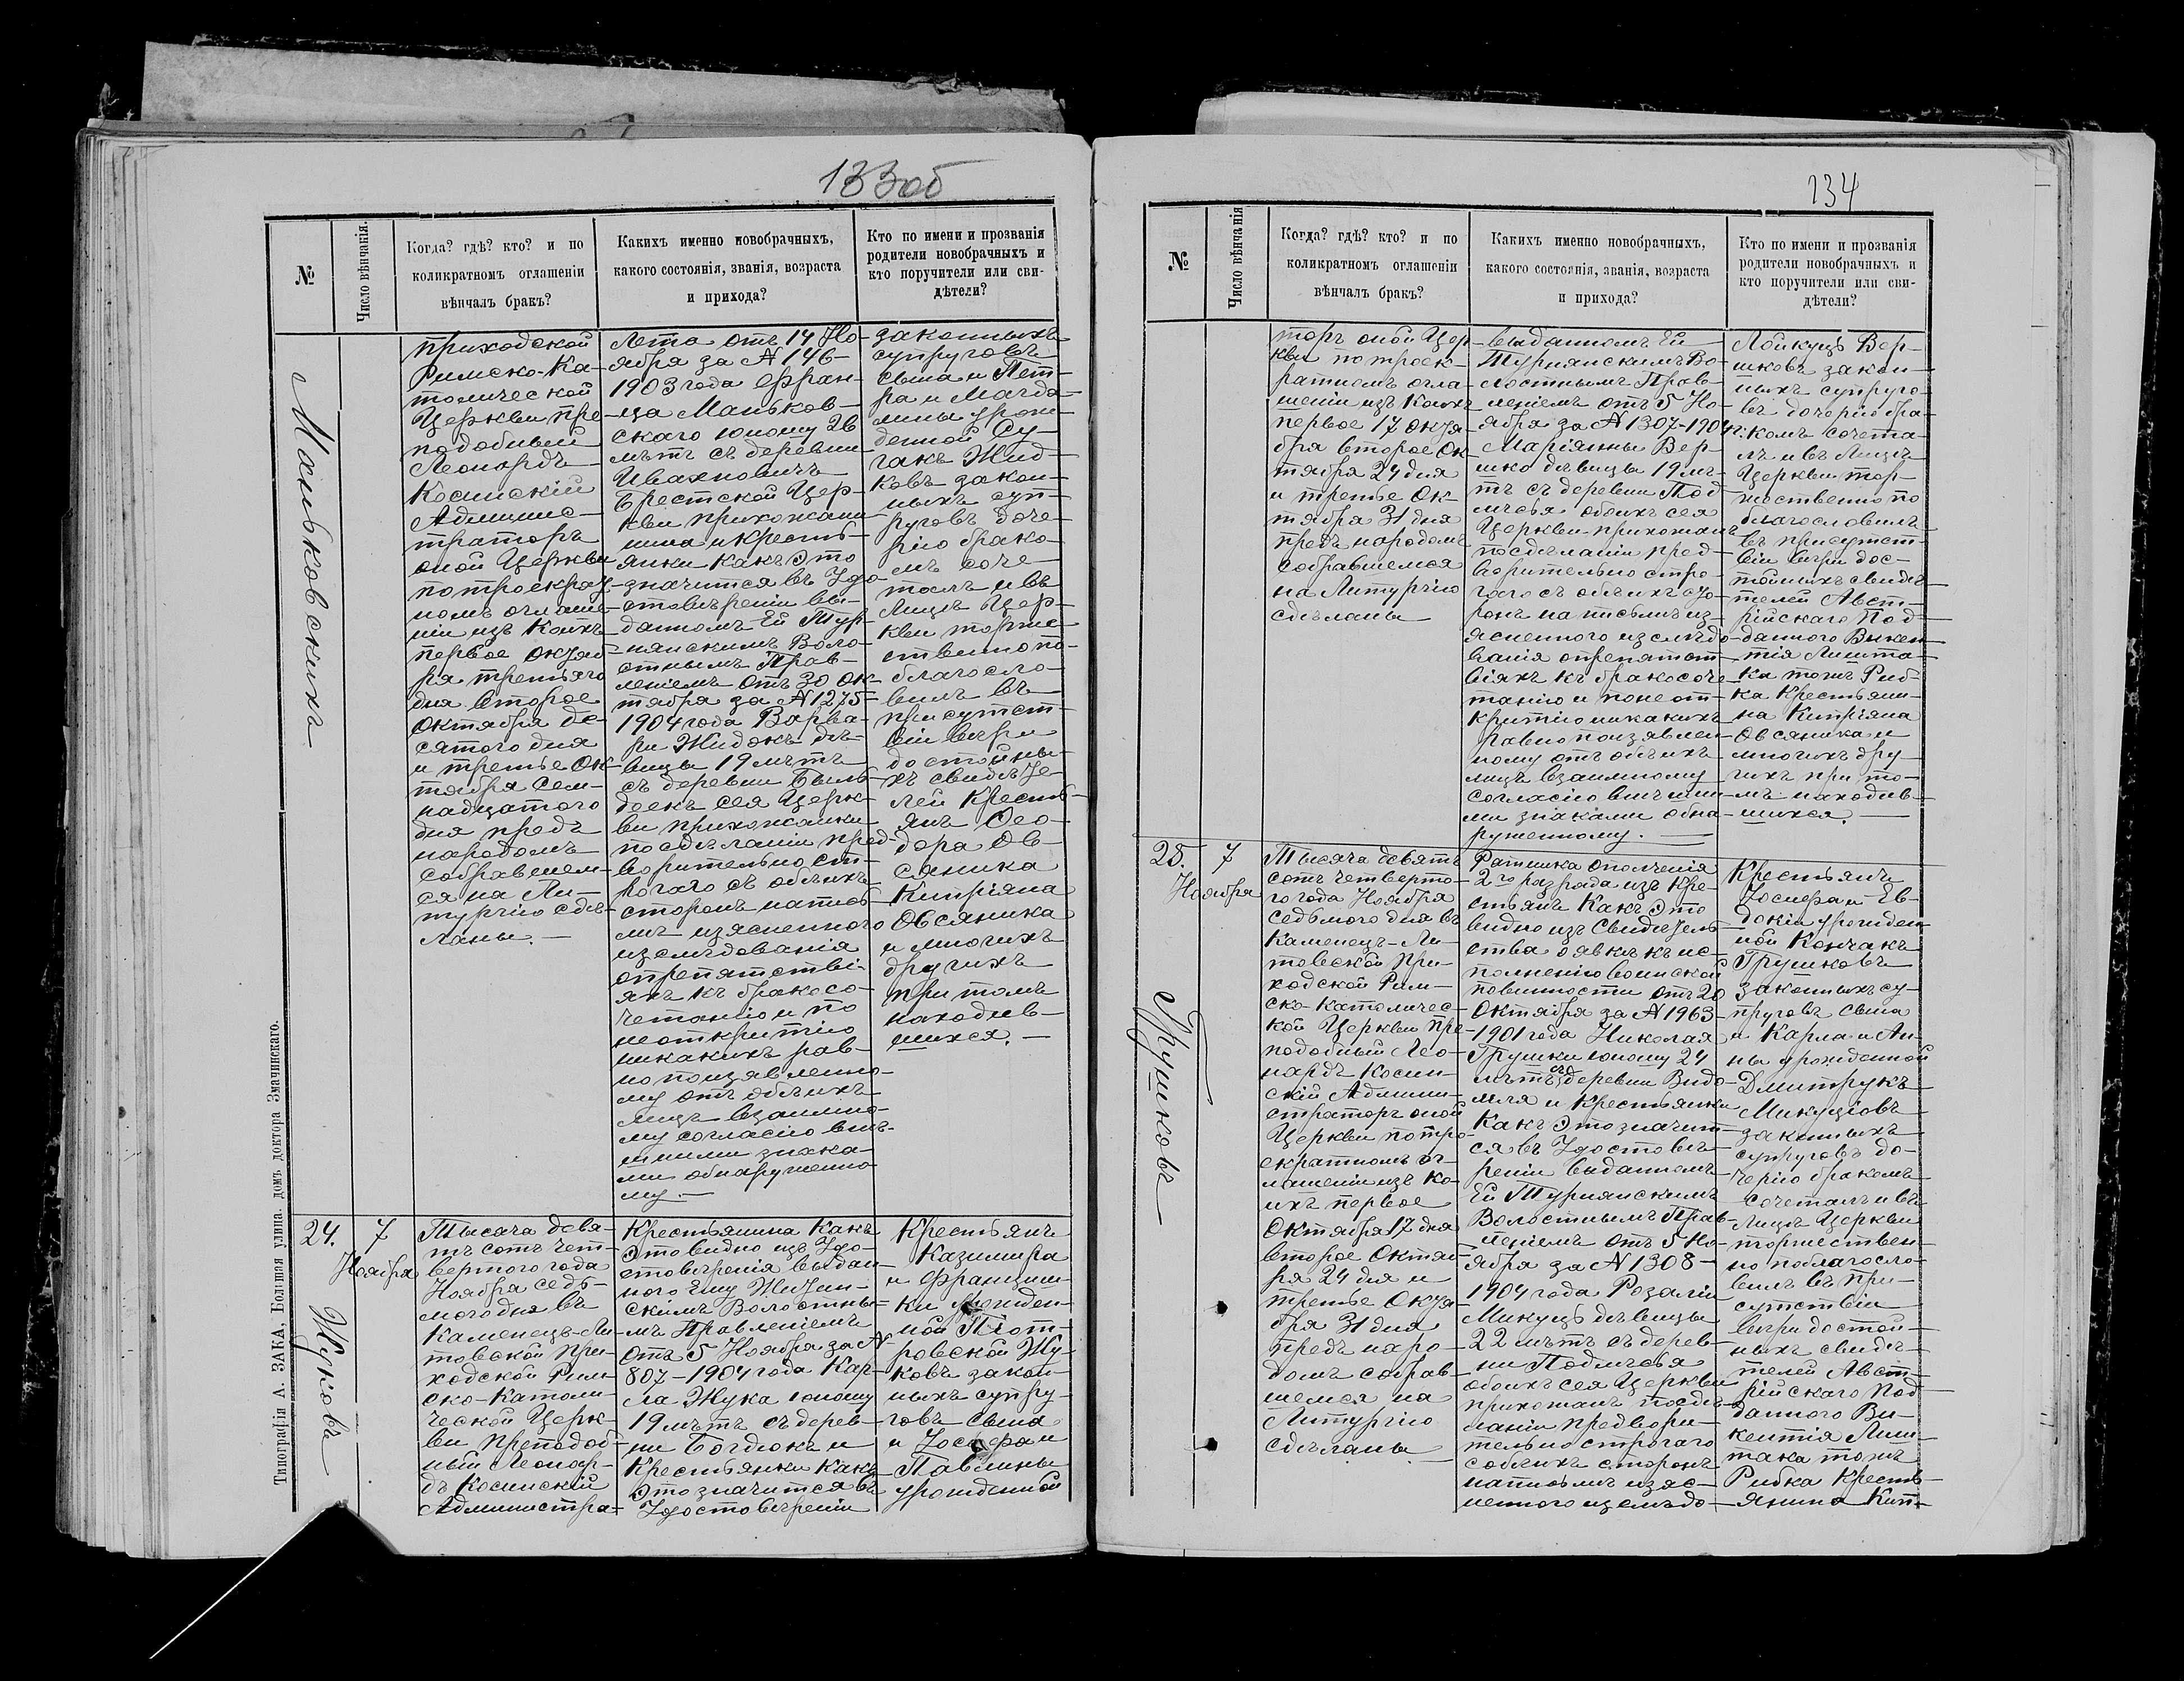 133об
№
Число вѣнчанія.
Когда? гдѣ? кто? и по
коликратномъ оглашеніи
вѣнчалъ бракъ?
Какихъ именно новобрачныхъ,
какого состоянія, званія, возраста
и прихода?
Кто по имени и прозванія
родители новобрачныхъ и
кто поручители или сви-
дѣтели?
Маньковскихъ
приходской
Римско-Ка-
толической
Церкви пре-
подобный
Леонардъ
Косинскій
Админис-
траторъ
оной Церкви
по троекрат-
номъ оглаше-
ніи изъ коихъ
первое Октяб-
ря третьяго
дня второе
Октября де-
сятого дня
и третье Ок-
тября сем-
надцатого
дня предъ
народомъ
собравшем-
ся на Ли-
тургію сдѣ-
ланы. —
Лета отъ 14 Но-
ября за N 146-
1903 года Фран-
ца Маньков-
скаго юношу 26
лѣтъ съ деревни
Ивахновичъ
Брестской Цер-
кви прихожани-
нина и Кресть-
янки какъ это
значится въ Удо-
стовѣреніи вы-
данномъ Ей Тур-
нянскимъ Воло-
стнымъ Прав-
леніемъ отъ 30 Ок-
тября за N 1275-
1904 года Варва-
ри Жидокъ дѣ-
вицы 19 лѣтъ
съ деревни Быль-
доекъ сея Церк-
ви прихожанки
по сдѣланіи пред-
ворительно ст-
рогаго съ обѣихъ
сторонъ написъ-
мѣ изясненного
изслѣдованія
опрепятстві-
яхъ къ бракосо-
четанію и по
неоткритію
никакихъ рав-
но по изявленно-
му отъ обѣихъ
лицъ взаимно-
му согласію внѣ-
шними знака-
ми обнаруженно-
му. —
законныхъ
супруговъ
сына и Пет-
ра и Магда-
лины урож-
денной Су-
чакъ Жид-
ковъ закон-
ныхъ суп-
руговъ доче-
рію брако-
мъ соче-
талъ и въ
Лицѣ Цер-
кви торже-
ственно по-
благосло-
вилъ въ
присутст-
віи вѣри
достойны-
хъ свидѣте-
лей Кресть-
янъ Ѳео-
дора Ов-
сяника
Кипріяна
Овсяника
и многихъ
другихъ
при томъ
находив-
шихся. —
24.
7
Ноября
Жуковъ
Тысяча девя-
тъ сотъ чет-
вертого года
Ноября седь-
мого дня въ
Каменецъ-Ли-
товской при-
ходской Рим-
ско-Католи-
ческой Церк-
ви преподоб-
ный Леонар-
дъ Косинскій
Администра-
Крестьянина Какъ
это видно изъ Удо-
стовѣренія выдан-
ного Ему Жизин-
скимъ Волостны-
мъ Правленіемъ
отъ 5 Ноября за N
807-1904 года Кар-
ла Жука юношу
19 лѣтъ съ дерев-
ни Богдюки и
Крестьянки Какъ
это значится въ
Удостовѣреніи
Крестьянъ
Казимира
и Францишки
урожден-
ной Піот-
ровской Жу-
ковъ закон-
ныхъ супру-
говъ сына
и Іосифа и
Павлины
урожденной
Типографія А. ЗАКА, Большая улица. домъ доктора Змачинскаго.
134
№
Число вѣнчанія
Когда? гдѣ? кто? и по
коликратномъ оглашеніи
вѣнчалъ бракъ?
Какихъ именно новобрачныхъ,
какого состоянія, званія, возраста
и прихода?
Кто по имени и прозванія
родители новобрачныхъ и
кто поручители или сви-
дѣтели?
торъ оной Цер-
кви по троек-
ратномъ огла-
шеніи изъ коихъ
первое 17 Октя-
бря второе Ок-
тября 24 дня
и третье Ок-
тября 31 дня
предъ народомъ
собравшемся
на Литургію
сдѣланы
выданномъ Ей
Турнянскимъ Во-
лостнымъ Прав-
леніемъ отъ 5 Но-
ября за N 1307-1904 г.
Маріянны Вер-
шко дѣвицы 19 лѣ-
тъ съ деревни Под-
лѣсья обоихъ сея
Церкви прихожанъ
по сдѣланіи пред-
ворительно стро-
гого съ обѣихъ сто-
ронъ написьмѣ из-
ясненного изслѣдо-
ванія опрепятст-
віяхъ къ бракосоче-
танію и понеот-
критію никакихъ
равно поизявлен-
ному отъ обѣихъ
лицъ взаимному
согласію внешни-
ми знаками обна-
руженному. —
Лойкуцъ Вер-
шковъ закон-
ныхъ супруго-
въ дочерію бра-
комъ сочета-
лъ и въ Лицѣ
Церкви тор-
жественно по
благословилъ
въ присутст-
віи вѣри дос-
тойныхъ свидѣ-
телей Авст-
рійскаго Под-
данного Викен-
тія Липта-
ка тожъ Риб-
ка Крестьяни-
на Кипріяна
Овсяника и
многихъ дру-
гихъ при то-
мъ находив-
шихся. —
25.
7
Ноября
Грушковъ
Тысяча девятъ
сотъ четверто-
го года Ноября
седьмого дня въ
Каменецъ-Ли-
товской При-
ходской Рим-
ско-Католичес-
кой Церкви Пре-
подобный Лео-
нардъ Косин-
скій Админи-
страторъ оной
Церкви потро-
екратномъ ог-
лашеніи изъ ко-
ихъ первое
Октября 17 дня
второе Октяб-
ря 24 дня и
третье Октя-
бря 31 дня
предъ наро-
домъ собрав-
шемся на
Литургію
сдѣланы. —
Ратника ополченія
2го разряда изъ Кре-
стьянъ Какъ это
видно изъ Свидѣтель-
ства о явкѣ къ ис-
полненію воинской
повинности отъ 20
Октября за N 1963-
1901 года Николая
Грушки юношу 24
лѣтъ съ деревни Видо-
мля и Крестьянки
Какъ это значит-
ся въ Удостовѣ-
реніи выданномъ
Ей Турнянскимъ
Волостнымъ Прав-
леніемъ отъ 5 Но-
ября за N 1308-
1904 года Розаліи
Микуцъ дѣвицы
22 лѣтъ съ дерев-
ни Подлѣсья
обоихъ сея Церкви
прихожанъ посдѣ-
ланіи предвори-
тельно строгаго
собѣихъ сторонъ
написьмѣ изяс-
ненного изслѣдо-
Крестьянъ
Іосифа и Ев-
докіи урожден-
ной Кончакъ
Грушковъ
законныхъ су-
пруговъ сына
и Карла и Ан-
ны урожденной
Дмитрукъ
Микуціовъ
законныхъ
супруговъ до-
черію бракомъ
сочеталъ и въ
Лицѣ Церкви
торжествен-
но поблагосло-
вилъ въ при-
сутствіи
вѣри достой-
ныхъ свидѣ-
телей Авст-
рійскаго Под-
данного Ви-
кентія Лип-
така тожъ
Рибка Кресть-
янина Кип-